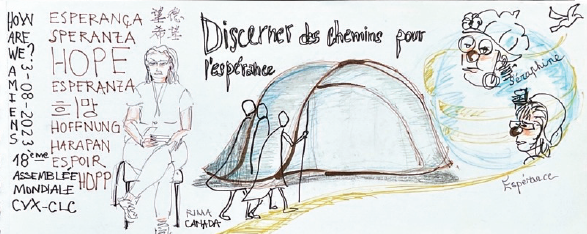 HOW
ARE
WE?
AMIENS
3-08-2023
18ème
ASSEMBLEE
MONDIALE
CVX-CLC
ESPERANÇA
SPERANZA
HOPE
ESPERANZA
희망
HOFFNUNG
HARAPAN
ESPOIR
HOPP
望德
希望
RIMA
CANADA
Discerner des chemins pour
l'espérance
Séraphine
Espérance